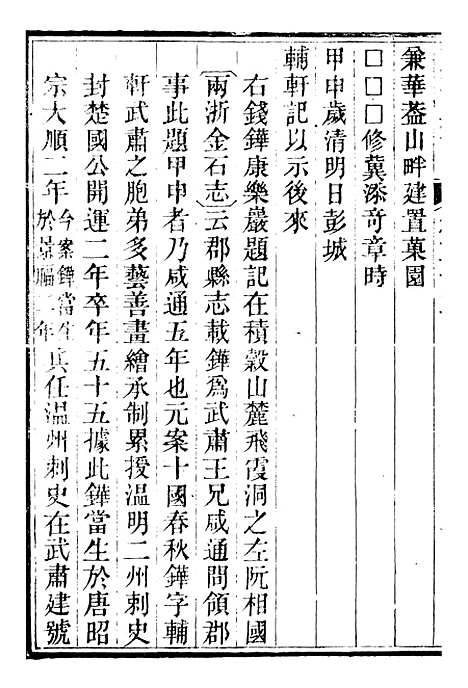 兼華蓋山畔建置菓園
□□□修冀添竒章時
甲申歲清明日彭城
輔軒記以示後來
右錢鏵康樂巖題記在積穀山麓飛霞洞之左阮相國
兩浙金石志云郡縣志載鏵爲武肅王兄咸通間領郡
事此題甲申者乃咸通五年也元案十國春秋鏵字輔
軒武肅之胞弟多藝善畫繪承制累授温明二州刺史
封楚國公開運二年卒年五十五據此鏵當生於唐昭
宗大順二年今案鏵當生於景福二年其任温州刺史在武肅建號